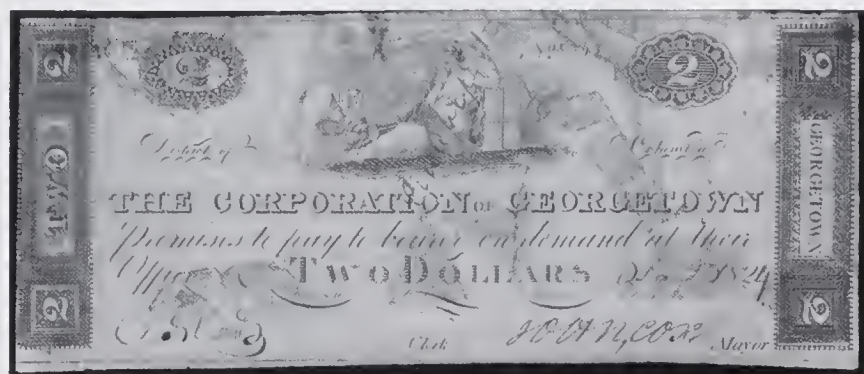 2 2
2 No. 2
TWO GEORGETOWN
District of Columbia
THE CORPORATION OF GEORGETOWN
Promises to pay to bearer on demand at their
Office TWO DOLLARS 1824
Clk. JOHN, COX Mayor
2 2